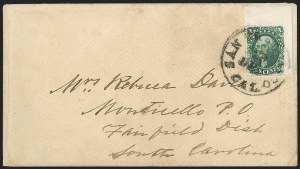 SAN
CAL.
CENTS
Mrs Rebeca Davis
Monticello P.O.
Fairfield Dist
South Carolina